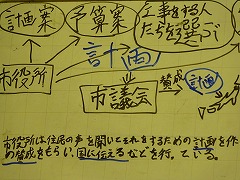 計画案
予算案
工事をする人
たちを選ぶ
計画
市役所
市議会
賛成
計画
市役所は、住民の声を聞いてそれをするための計画を作
め賛成をもらい、国に伝えるなどを行っている。